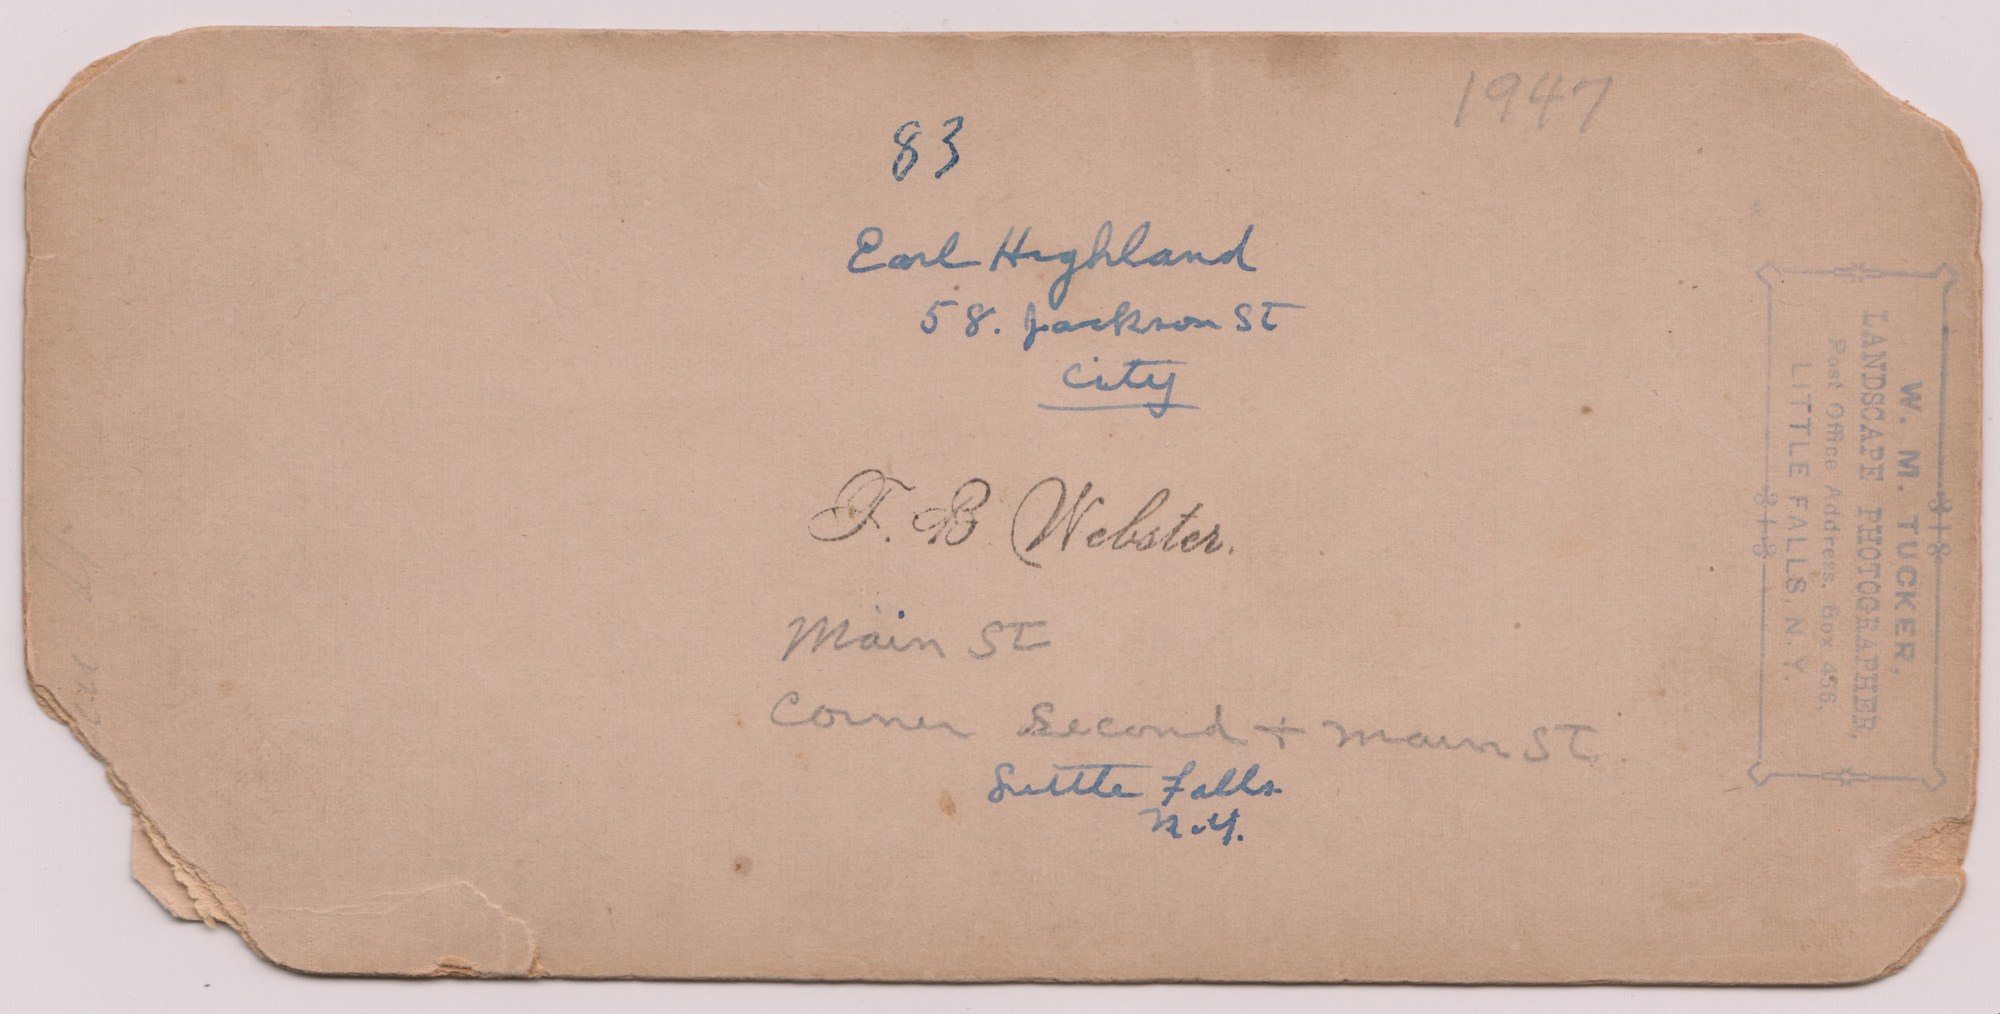 1947
83
Earl Highland
58. Jackson St
City
F. B. Webster.
Main St
Corner Second + Main St.
Little Falls.
N.Y.
W. M. TUCKER,
LANDSCAPE PHOTOGRAPHER,
Post Office Address, Box 456,
LITTLE FALLS, N. Y.